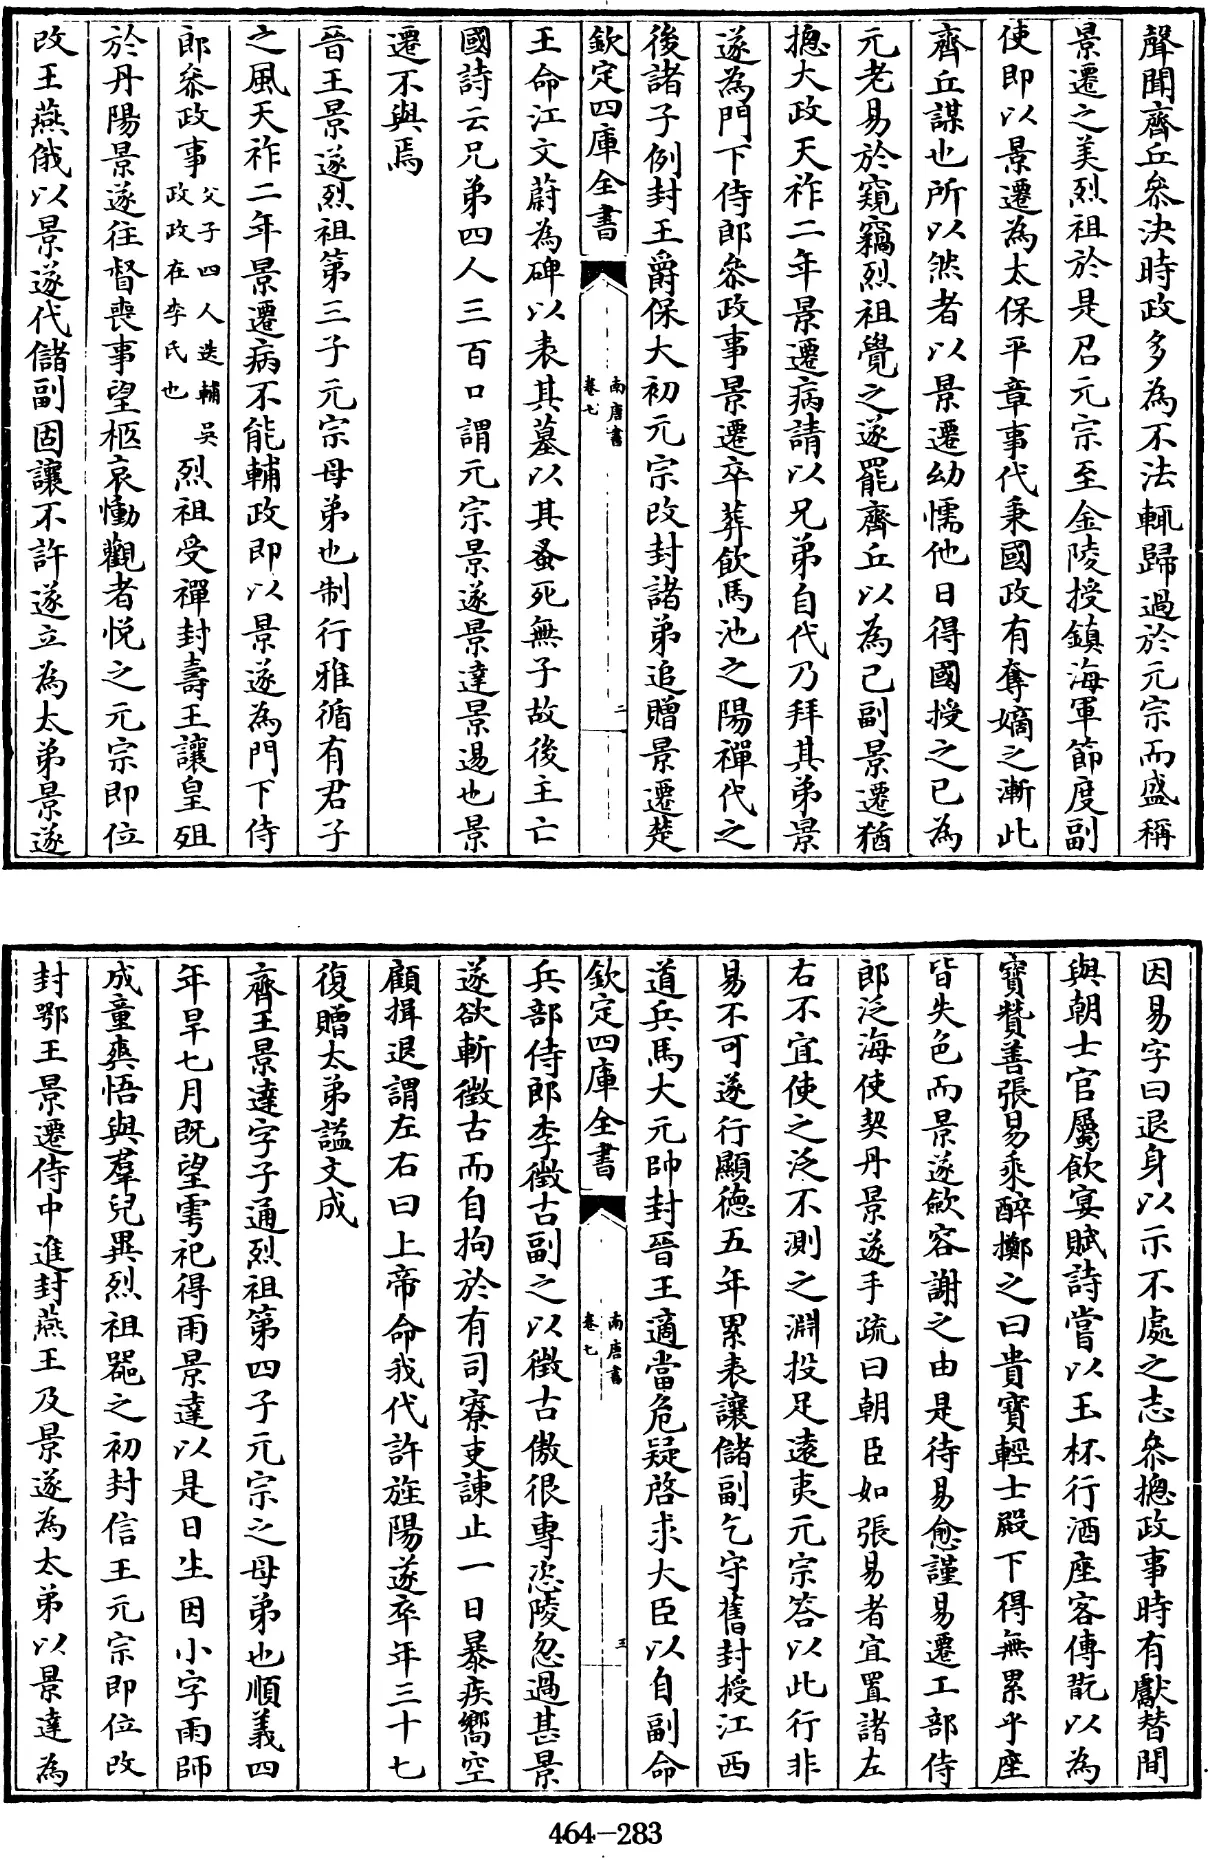 聲聞齊丘叅決時政多為不法輒歸過於元宗而盛稱
景遷之美烈祖於是召元宗至金陵授鎮海軍節度副
使即以景遷為太保平章事代秉國政有奪嫡之漸此
齊丘謀也所以然者以景遷幼懦他日得國授之已為
元老易於窺竊烈祖覺之遂罷齊丘以為己副景遷猶
揔大政天祚二年景遷病請以兄弟自代乃拜其弟景
遂為門下侍郎叅政事景遷卒葬飲馬池之陽禪代之
後諸子例封王爵保大初元宗改封諸弟追贈景遷楚
欽定四庫全書
南唐書
卷七
二
王命江文蔚為碑以表其墓以其蚤死無子故後主亡
國詩云兄弟四人三百口謂元宗景遂景達景逷也景
遷不與焉
晉王景遂烈祖第三子元宗母弟也制行雅循有君子
之風天祚二年景遷病不能輔政即以景遂為門下侍
郎叅政事父子四人迭輔吳政政在李氏也烈祖受禪封壽王讓皇殂
於丹陽景遂往督喪事望柩哀慟觀者悅之元宗即位
改王燕俄以景遂代儲副固讓不許遂立為太弟景遂
因易字曰退身以示不處之志叅揔政事時有獻替間
與朝士官屬飲宴賦詩嘗以玉杯行酒座客傳翫以為
寶贊善張易乘醉擲之曰貴寶輕士殿下得無累乎座
皆失色而景遂歛容謝之由是待易愈謹易遷工部侍
郎泛海使契丹景遂手疏曰朝臣如張易者宜置諸左
右不宜使之泛不測之淵投足遠夷元宗答以此行非
易不可遂行顯德五年累表讓儲副乞守舊封授江西
道兵馬大元帥封晉王適當危疑啓求大臣以自副命
欽定四庫全書
南唐書
卷七
三
兵部侍郎李徵古副之以徵古傲很專恣陵忽過甚景
遂欲斬徵古而自拘於有司寮吏諫止一日暴疾嚮空
顧揖退謂左右曰上帝命我代許旌陽遂卒年三十七
復贈太弟諡文成
齊王景達字子通烈祖第四子元宗之母弟也順義四
年旱七月既望雩祀得雨景達以是日生因小字雨師
成童爽悟與羣兒異烈祖器之初封信王元宗即位改
封鄂王景遷侍中進封燕王及景遂為太弟以景達為
464-283